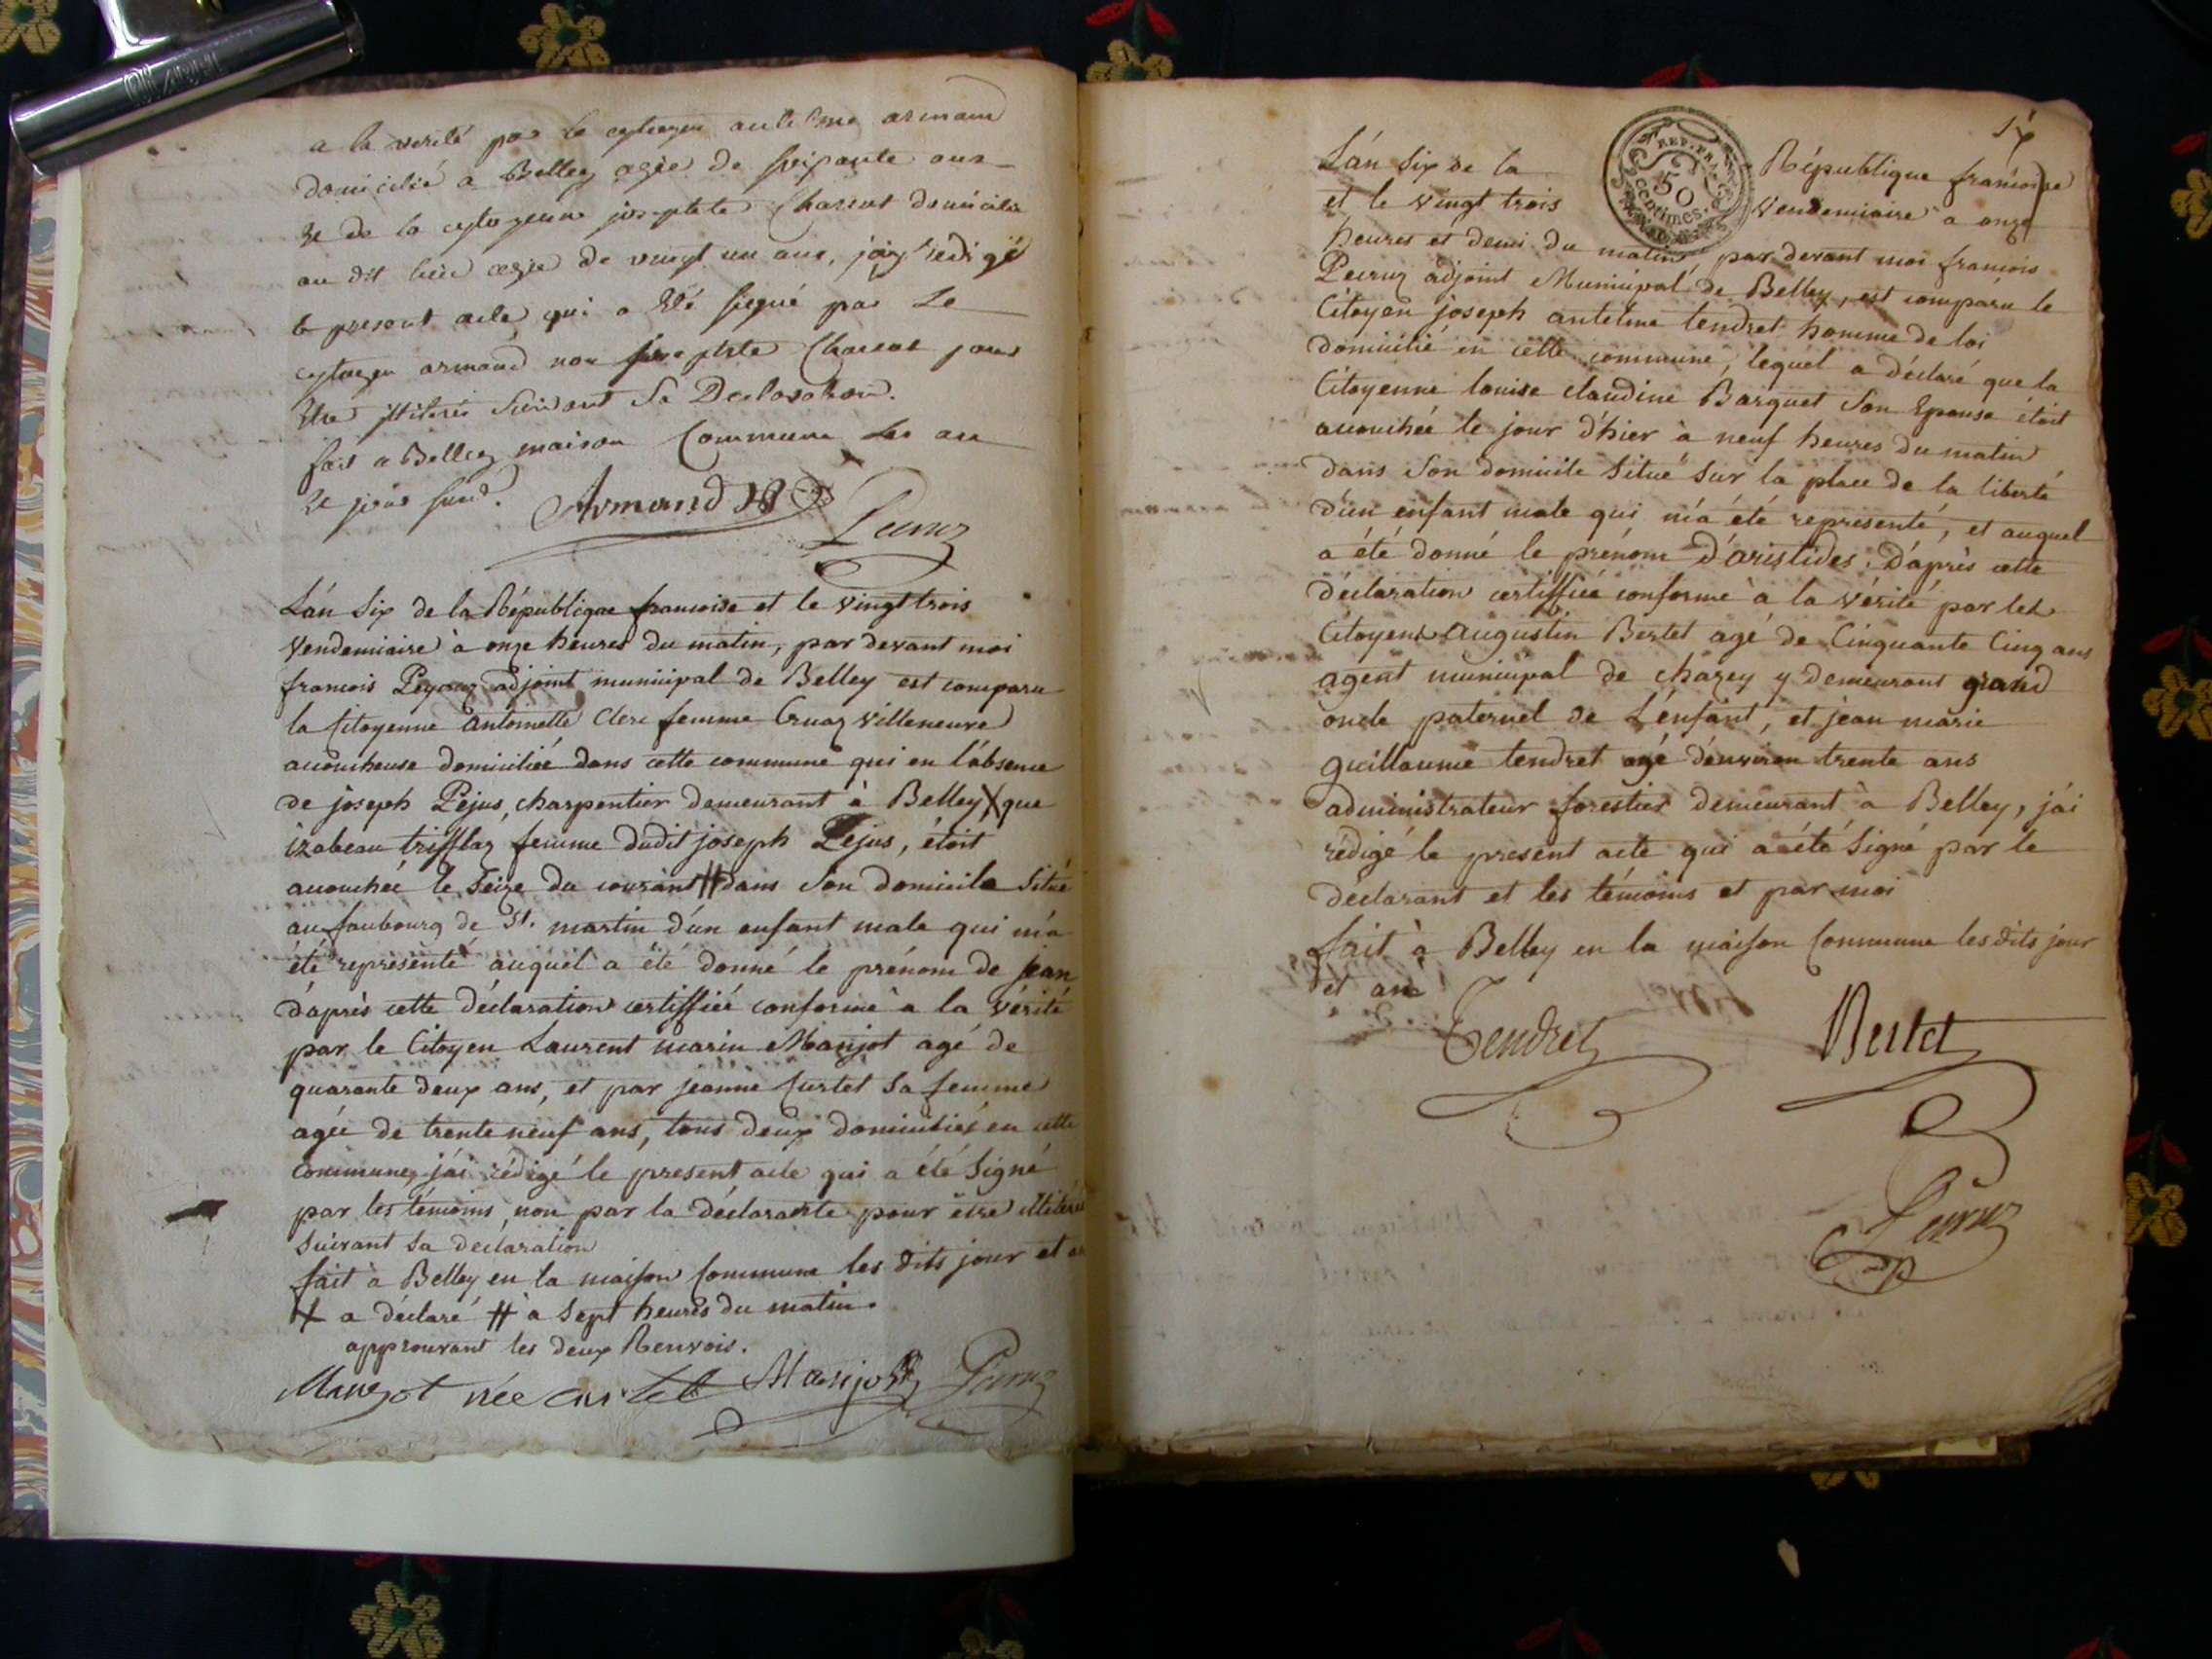 a la verité par le cytoyen antelme armand
domicilié a Belley agée de soixante ans
et de la cytoyenne josephte Charcot domicilié
au dit lieu agée de vingt un ans, j'ay redigé
le present acte qui a été signé par le
cytoyen armand non josephte Charcot pour
etre illiteré suivant sa Declaration.
fait a Belley maison Commune les an
et jour susd.
Armand
Peiruz
L'an six de la République francoise et le vingt trois
vendemiaire à onze heures du matin, par devant moi
francois adjoint municipal de Belley est comparu
la Citoyenne antoinette Clerc femme Cruaz villeneuve
accoucheuse domiciliée dans cette commune qui en l'absence
de joseph Pejus, charpentier demeurant à Belley X que
izabeau trifflaz femme dudit joseph Pejus, étoit
accouchée le seize du courant # dans son domicile situé
au faubourg de St. martin d'un enfant male qui m'a
été representé auquel a été donné le prénom de jean
d'après cette déclaration certiffiée conforme à la vérité
par le Citoyen Laurent marin Manjot agé de
quarante deux ans, et par jeanne Curtet sa femme
agée de trente neuf ans, tous deux domiciliés en cette
Commune, j'ai rédigé le present acte qui a été signé
par les témoins, non par la déclarante pour être illiteré
suivant sa declaration
fait à Belley en la maison Commune les dits jour et an
X a déclaré # à sept heures du matin.
approuvant les deux Renvois.
Manjot née curtet Manjot Peiruz
L'an six de la République francoise
REP. FRA.
50
centimes.
et le vingt trois vendemiaire à onze
heures et demi du matin, par devant moi francois
Peiruz adjoint Municipal de Belley, est comparu le
Citoyen joseph antelme tendret homme de loi
domicilié en cette commune, lequel a déclaré que la
Citoyenne louise claudine Barquet son Epouse étoit
accouchée le jour d'hier à neuf heures du matin
dans son domicile situé sur la place de la liberté
d'un enfant male qui m'a été representé, et auquel
a été donné le prénom d'aristides. D'après cette
déclaration certiffiée conforme à la vérité par les
Citoyens augustin Bertet agé de Cinquante Cinq ans
agent municipal de chazey y demeurant grand
oncle paternel de L'enfant, et jean marie
guillaume tendret agé d'environ trente ans
administrateur forestier demeurant à Belley, j'ai
rédigé le present acte qui a été signé par le
déclarant et les témoins et par moi
fait à Belley en la maison Commune les dits jour
et an
Tendret Bertet
Peiruz